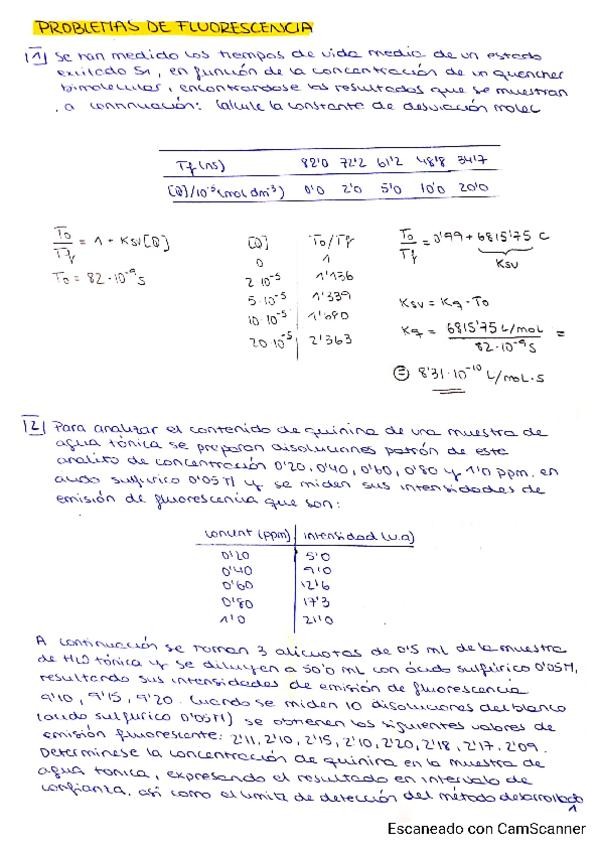 PROBLEMAS DE FLUORESCENCIA
1) Se han medido los tiempos de vida media de un estado
excitado S1, en función de la concentración de un quencher
bimolecular, encontrandose los resultados que se muestran
a continuación: Calcule la constante de desviación molec
Tf (ns) 82'0 72'2 61'2 48'8 34'7
[Q]/10⁻⁵(mol dm⁻³) 0'0 2'0 5'0 10'0 20'0
To/Tf = 1 + Ksv[Q]
To = 82·10⁻⁹ s
[Q] To/Tf
0 1
2·10⁻⁵ 1'136
5·10⁻⁵ 1'339
10·10⁻⁵ 1'680
20·10⁻⁵ 2'363
To/Tf = 0'99 + 6815'75 C
Ksv
Ksv = Kq · To
Kq = 6815'75 L/mol / 82·10⁻⁹ s =
= 8'31·10⁻¹⁰ L/mol·s
2) Para analizar el contenido de quinina de una muestra de
agua tónica se preparan disoluciones patrón de este
analito de concentración 0'20, 0'40, 0'60, 0'80 y 1'0 ppm, en
ácido sulfúrico 0'05 M y se miden sus intensidades de
emisión de fluorescencia que son:
concent (ppm) intensidad (u.a)
0'20 5'0
0'40 9'0
0'60 12'6
0'80 17'3
1'0 21'0
A continuación se toman 3 alicuotas de 0'5 mL de la muestra
de H2O tónica y se diluyen a 50'0 mL con ácido sulfúrico 0'05M,
resultando sus intensidades de emisión de fluorescencia
9'10, 9'15, 9'20. Cuando se miden 10 disoluciones del blanco
(ácido sulfúrico 0'05M) se obtienen los siguientes valores de
emisión fluorescente: 2'11, 2'10, 2'15, 2'10, 2'20, 2'18, 2'17, 2'09.
Determínese la concentración de quinina en la muestra de
agua tonica, expresando el resultado en intervalo de
confianza, así como el límite de detección del método desarrollado
1
Escaneado con CamScanner